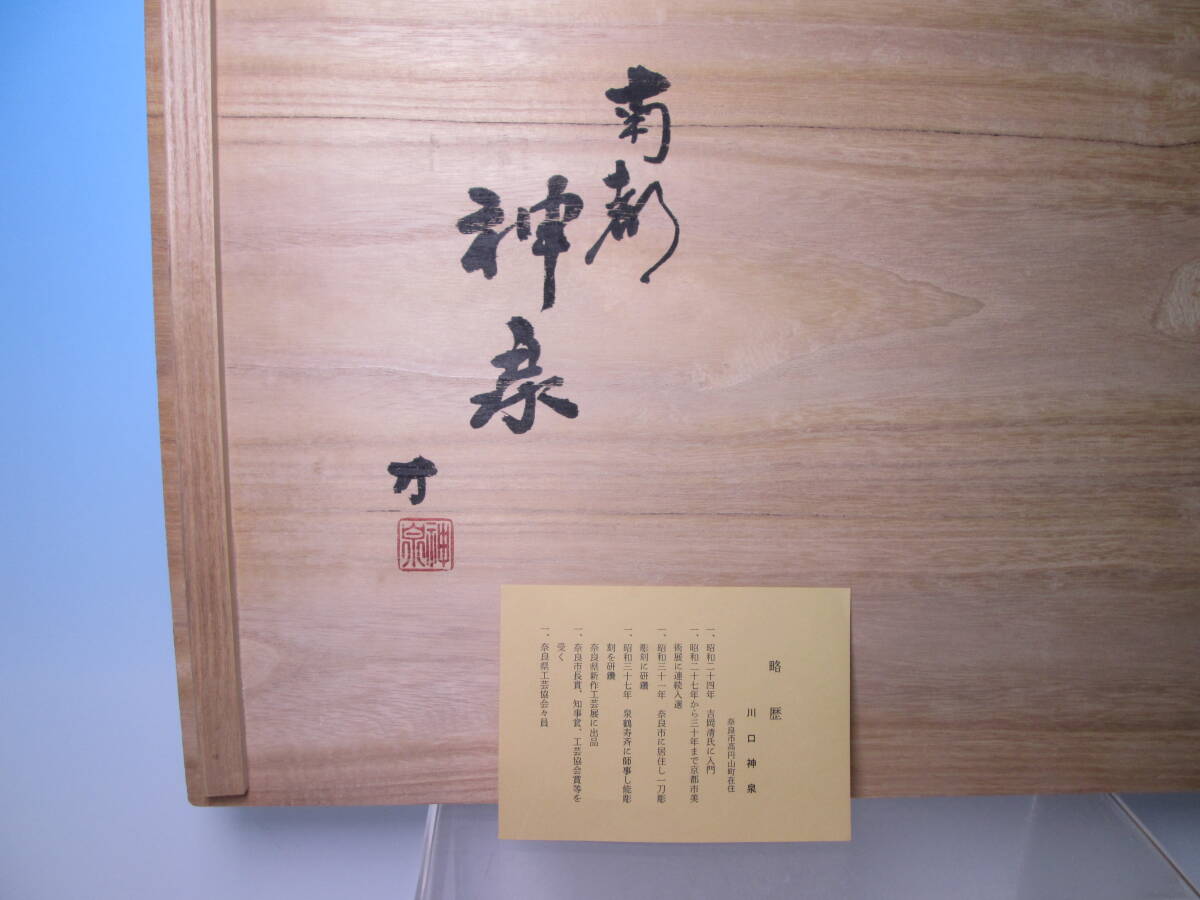 南都
神泉
刀
神泉
略歴
川口神泉
奈良市高円山町在住
一、昭和二十四年　吉岡清氏に入門
一、昭和二十七年から三十年まで京都市美
術展に連続入選
一、昭和三十一年　奈良市に居住し一刀彫
彫刻に研鑽
一、昭和三十七年　泉鶴寿斉に師事し能彫
刻を研鑽
奈良県新作工芸展に出品
一、奈良市長賞、知事賞、工芸協会賞等を
受く
一、奈良県工芸協会々員